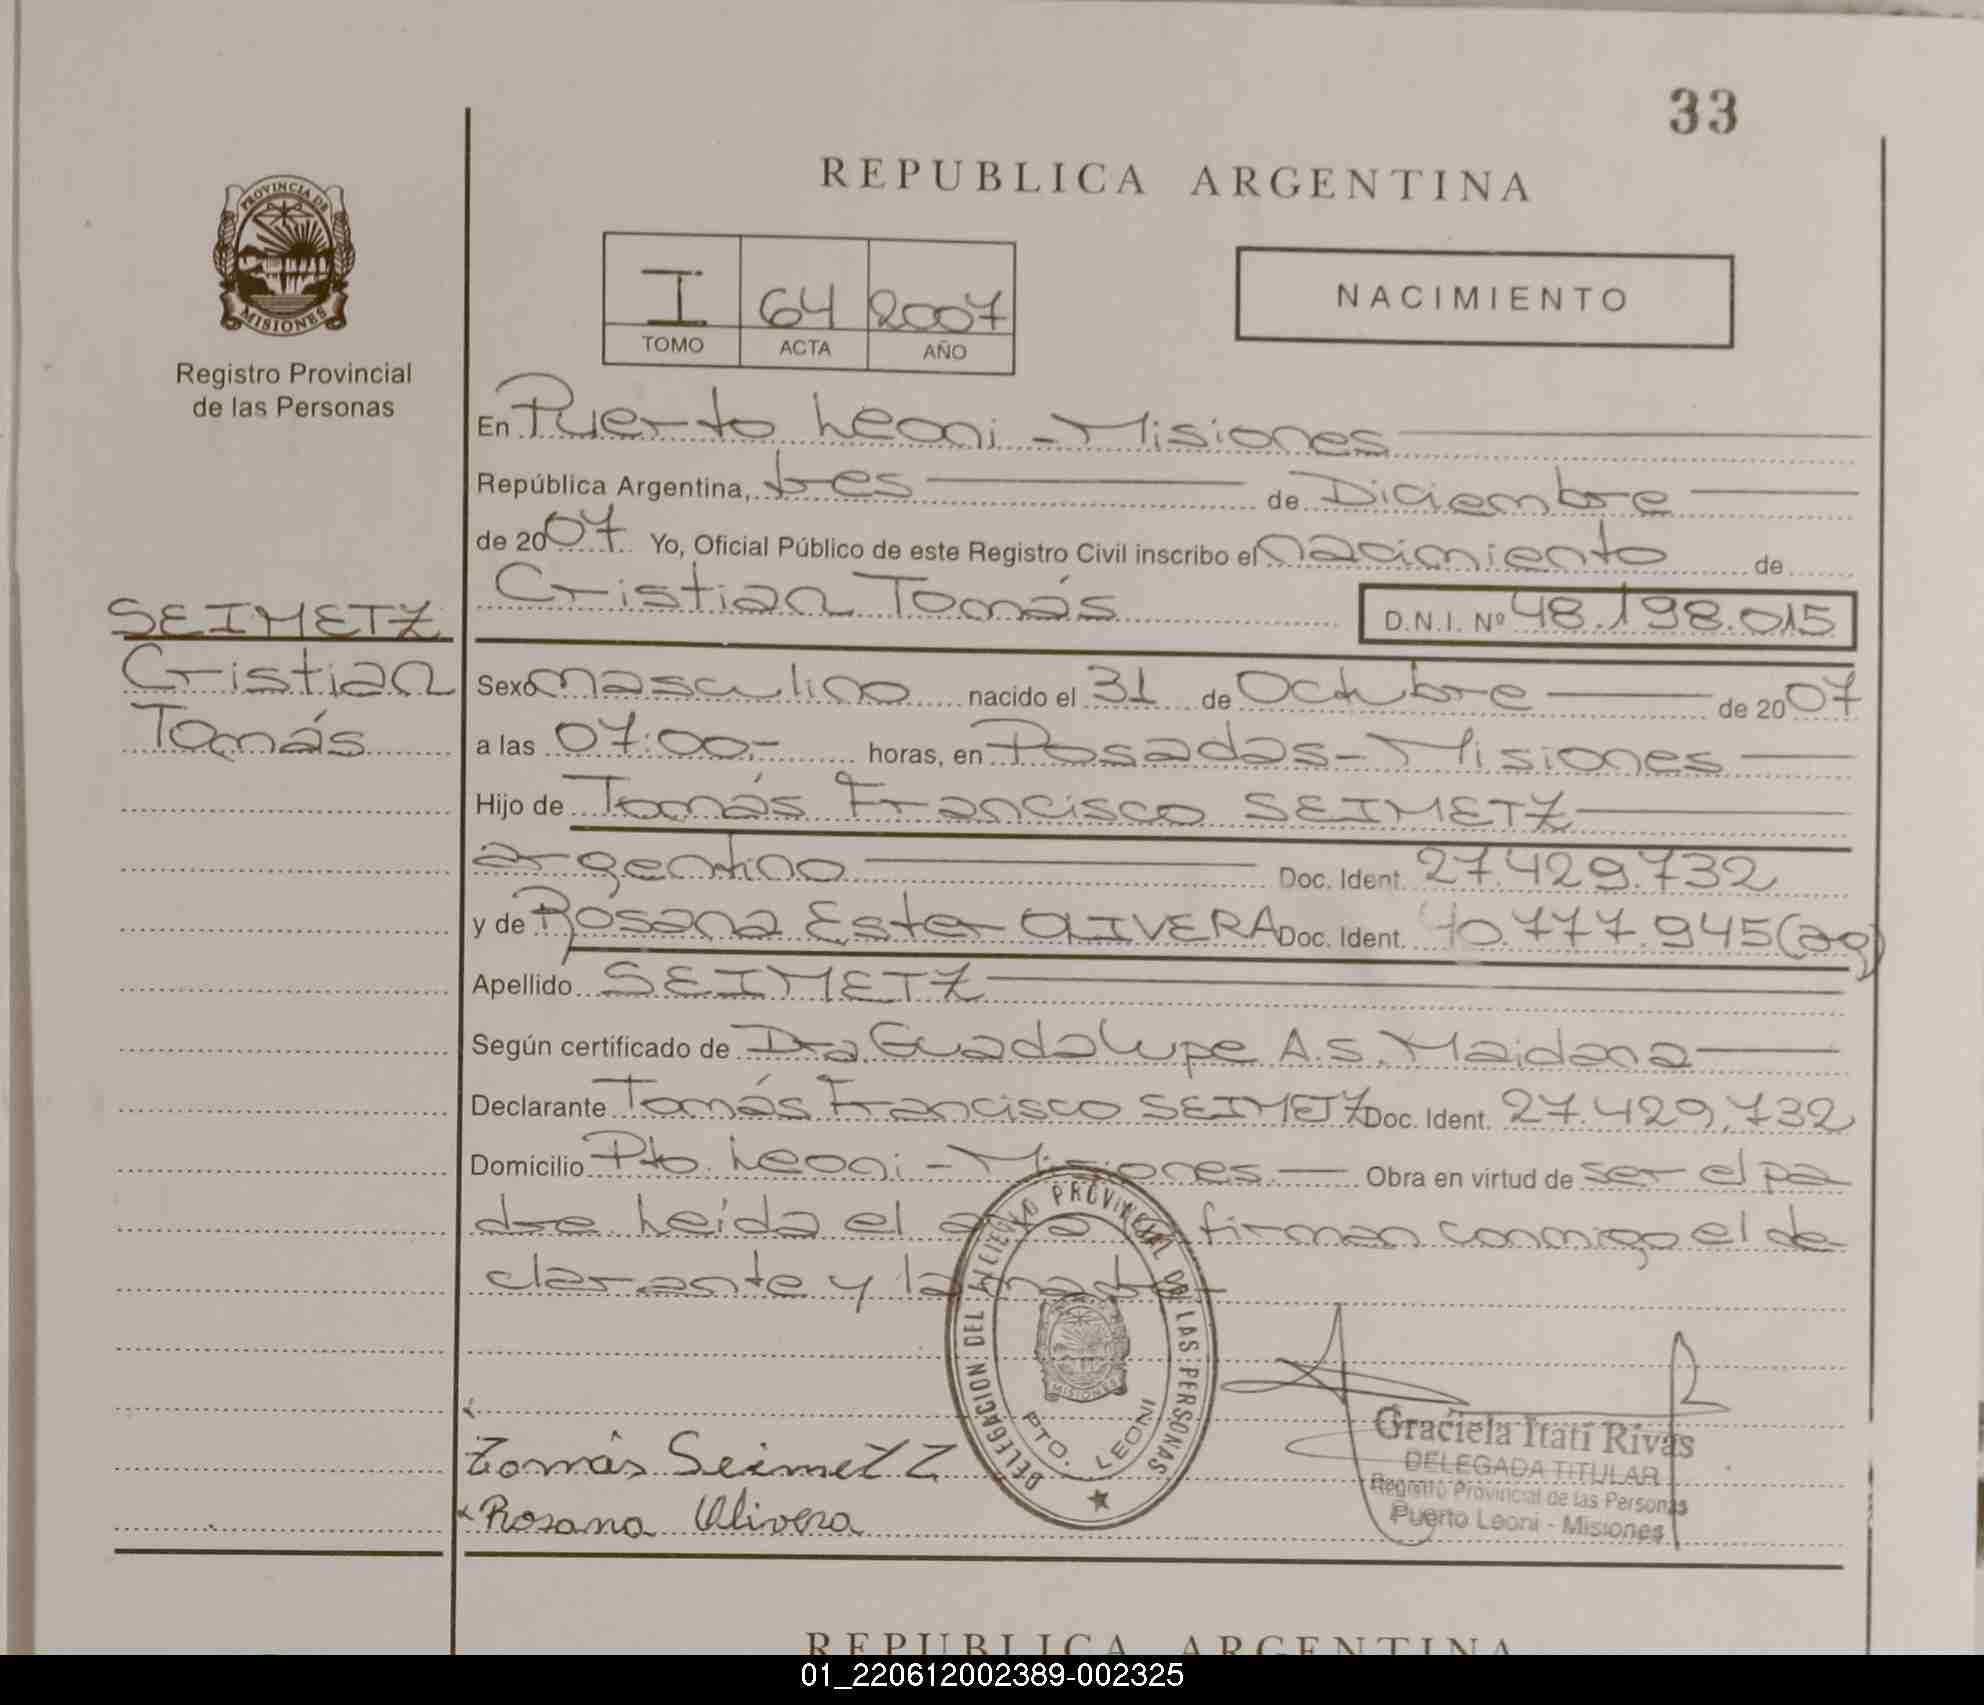 33
REPUBLICA ARGENTINA
PROVINCIA DE
MISIONES
Registro Provincial
de las Personas
I 64 2007
TOMO ACTA AÑO
NACIMIENTO
En Puerto Leoni - Misiones
República Argentina, tres de Diciembre
de 2007 Yo, Oficial Público de este Registro Civil inscribo el nacimiento de
Cristian Tomás D.N.I. Nº 48.198.015
SEIMETZ
Cristian
Tomás
Sexo masculino nacido el 31 de Octubre de 2007
a las 07:00.- horas, en Posadas - Misiones
Hijo de Tomás Francisco SEIMETZ
argentino Doc. Ident. 27.429.732
y de Rosana Ester OLIVERA Doc. Ident. 40.777.945 (ag)
Apellido SEIMETZ
Según certificado de Dra Guadalupe A.S. Maidana
Declarante Tomás Francisco SEIMETZ Doc. Ident. 27.429.732
Domicilio Pto. Leoni - Misiones Obra en virtud de ser el pa
dre Leída el acta firman conmigo el de
clarante y la madre
DELEGACION DEL REGISTRO PROVINCIAL DE LAS PERSONAS
MISIONES
PTO. LEONI
Tomás Seimetz
Rosana Olivera
Graciela Itatí Rivas
DELEGADA TITULAR
Registro Provincial de las Personas
Puerto Leoni - Misiones
REPUBLICA ARGENTINA
01_220612002389-002325